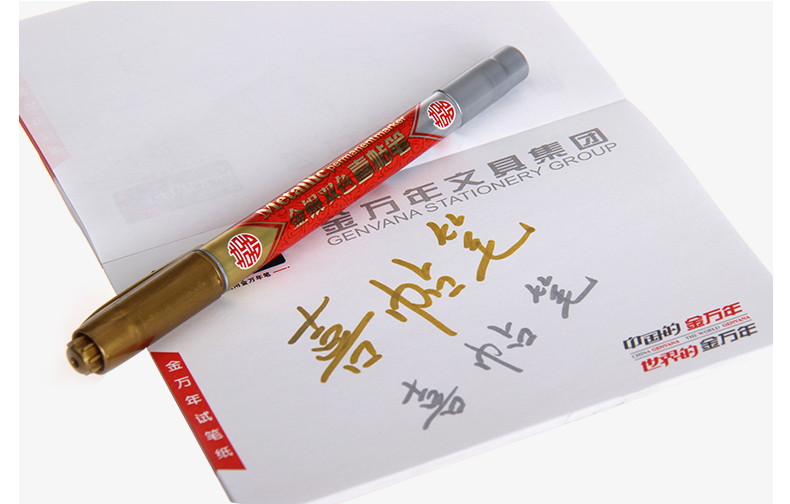 Metallic permanentmarker
金银双色喜帖笔
囍
囍
金万年文具集团
GENVANA STATIONERY GROUP
州金万年笔
喜帖笔
喜帖笔
中国的 金万年
CHINA GENVANA THE WORLD GENVANA
世界的 金万年
金万年试笔纸